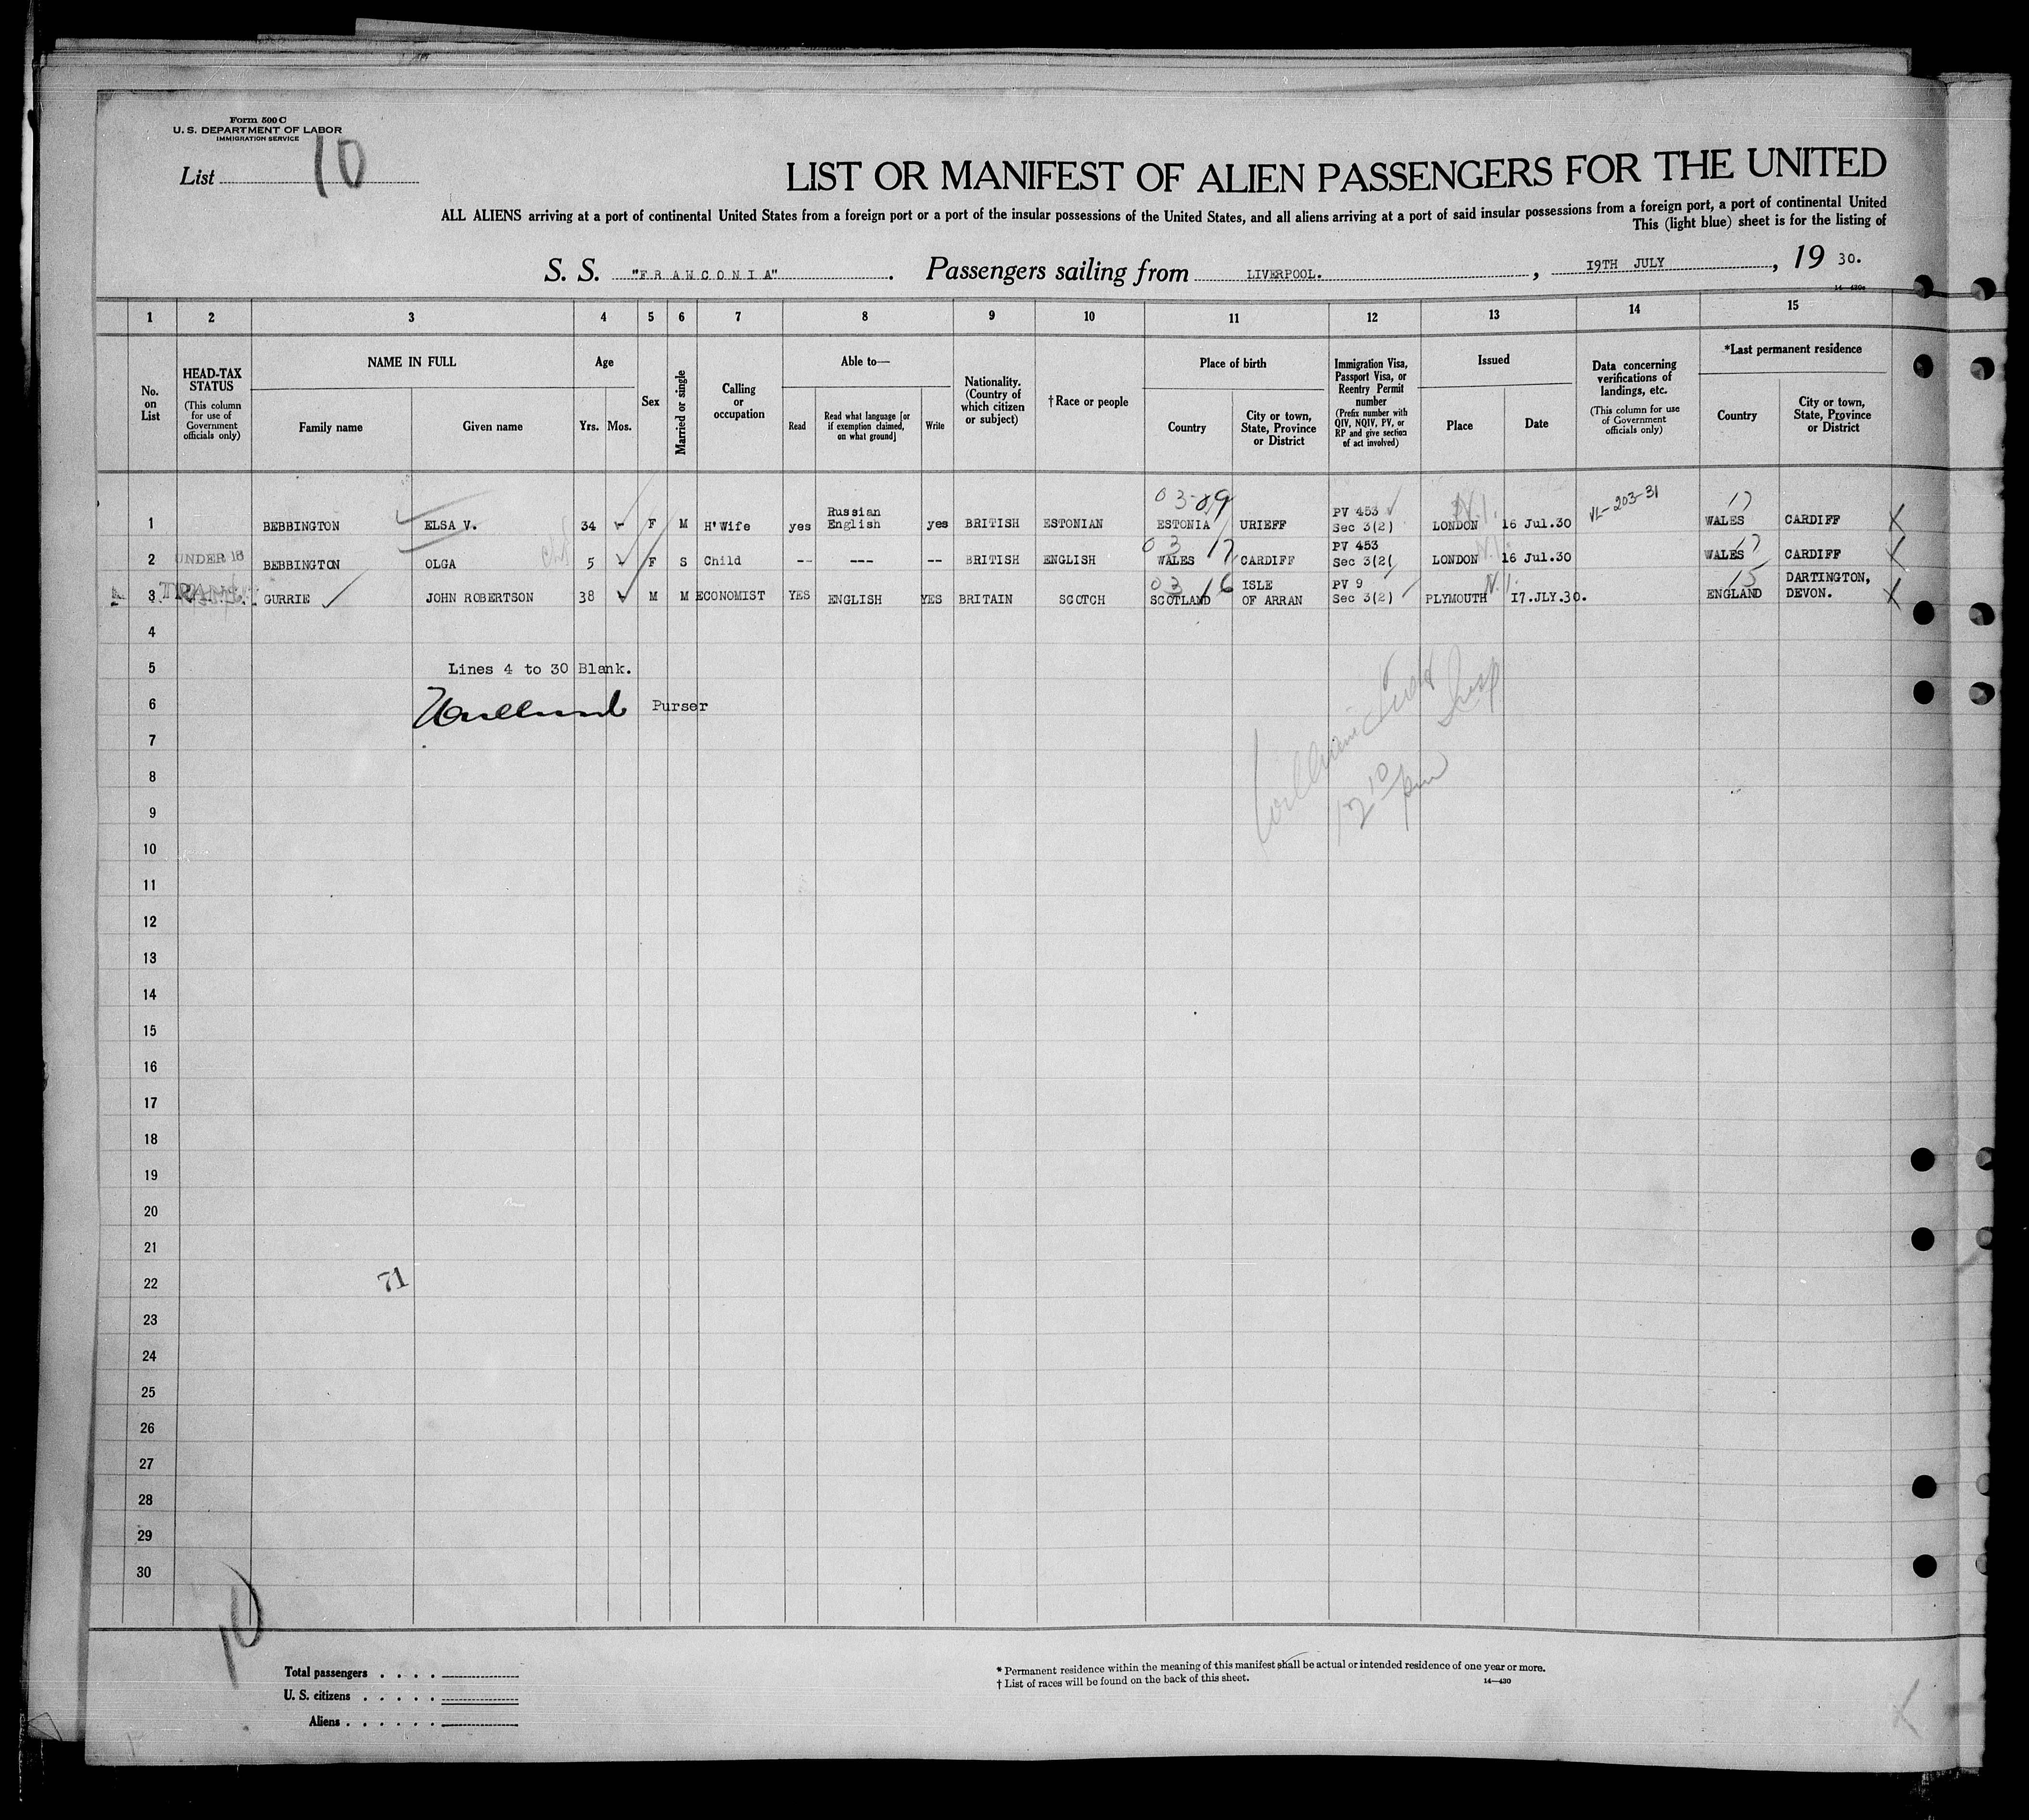 Form 500 C
U. S. DEPARTMENT OF LABOR
IMMIGRATION SERVICE
List 10
LIST OR MANIFEST OF ALIEN PASSENGERS FOR THE UNITED
ALL ALIENS arriving at a port of continental United States from a foreign port or a port of the insular possessions of the United States, and all aliens arriving at a port of said insular possessions from a foreign port, a port of continental United
This (light blue) sheet is for the listing of
S. S. "FRANCONIA". Passengers sailing from LIVERPOOL., 19TH JULY, 19 30.
14—430a
1 2 3 4 5 6 7 8 9 10 11 12 13 14 15
No. on List
HEAD-TAX STATUS (This column for use of Government officials only)
NAME IN FULL
Family name
Given name
Age
Yrs. Mos.
Sex
Married or single
Calling or occupation
Able to—
Read
Read what language [or if exemption claimed, on what ground]
Write
Nationality. (Country of which citizen or subject)
†Race or people
Place of birth
Country
City or town, State, Province or District
Immigration Visa, Passport Visa, or Reentry Permit number (Prefix number with QIV, NQIV, PV, or RP and give section of act involved)
Issued
Place
Date
Data concerning verifications of landings, etc. (This column for use of Government officials only)
*Last permanent residence
Country
City or town, State, Province or District
03-89 VL-203-31 17
1 BEBBINGTON ELSA V. 34 F M H'Wife yes Russian English yes BRITISH ESTONIAN ESTONIA URIEFF PV 453 Sec 3(2) LONDON N.I. 16 Jul.30 WALES CARDIFF X
03 17 17
2 UNDER 16 BEBBINGTON OLGA 5 F S Child -- --- -- BRITISH ENGLISH WALES CARDIFF PV 453 Sec 3(2( LONDON N.I. 16 Jul.30 WALES CARDIFF X
03 16 15
3 GURRIE JOHN ROBERTSON 38 M M ECONOMIST YES ENGLISH YES BRITAIN SCOTCH SCOTLAND ISLE OF ARRAN PV 9 Sec 3(2) PLYMOUTH N.I. 17.JLY.30. ENGLAND DARTINGTON, DEVON. X
4
5 Lines 4 to 30 Blank.
6 Purser
7
8
9
10
11
12
13
14
15
16
17
18
19
20
21
22 71
23
24
25
26
27
28
29
30
10
Total passengers
U. S. citizens
Aliens
* Permanent residence within the meaning of this manifest shall be actual or intended residence of one year or more.
† List of races will be found on the back of this sheet.
14—430